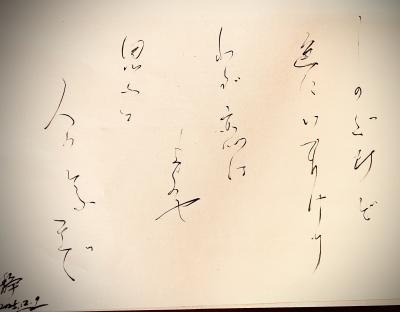 しのぶれど
色にいでにけり
わが恋は
ものや
思ふと
人の問ふまで